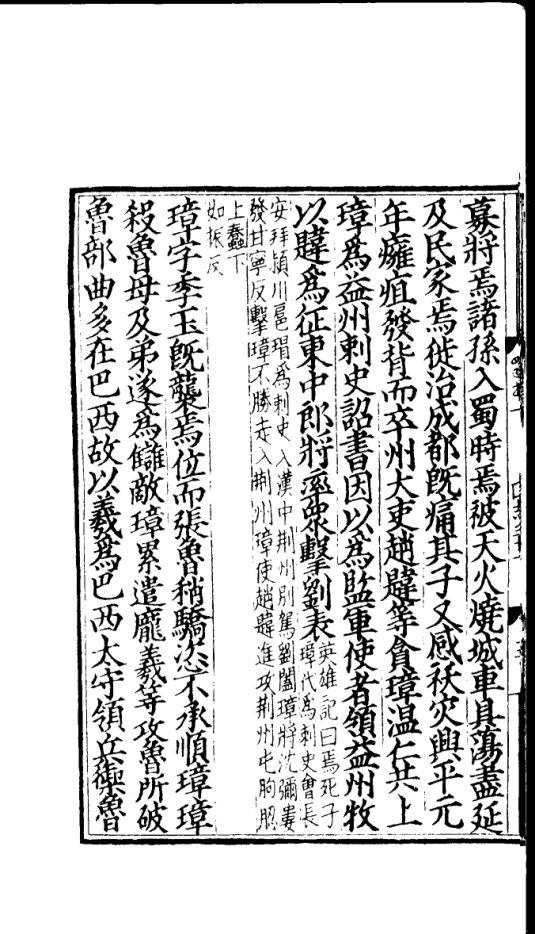 募將焉諸孫入蜀時焉被天火燒城車具蕩盡延
及民家焉徙治成都旣痛其子又感祅灾興平元
年癰疽發背而卒州大吏趙韙等貪璋温仁共上
璋爲益州刺史詔書因以爲監軍使者領益州牧
以韙爲征東中郎將率衆擊劉表
英雄記曰焉死子
璋代爲刺史會長
安拜潁川扈瑁爲刺史入漢中荆州別駕劉闔璋將沈彌婁
發甘寧反擊璋不勝走入荆州璋使趙韙進攻荆州屯朐䏰
上蠢下
如振反
璋字季玉旣襲焉位而張魯稍驕恣不承順璋璋
殺魯母及弟遂爲讎敵璋累遣龐義等攻魯所破
魯部曲多在巴西故以義爲巴西太守領兵禦魯